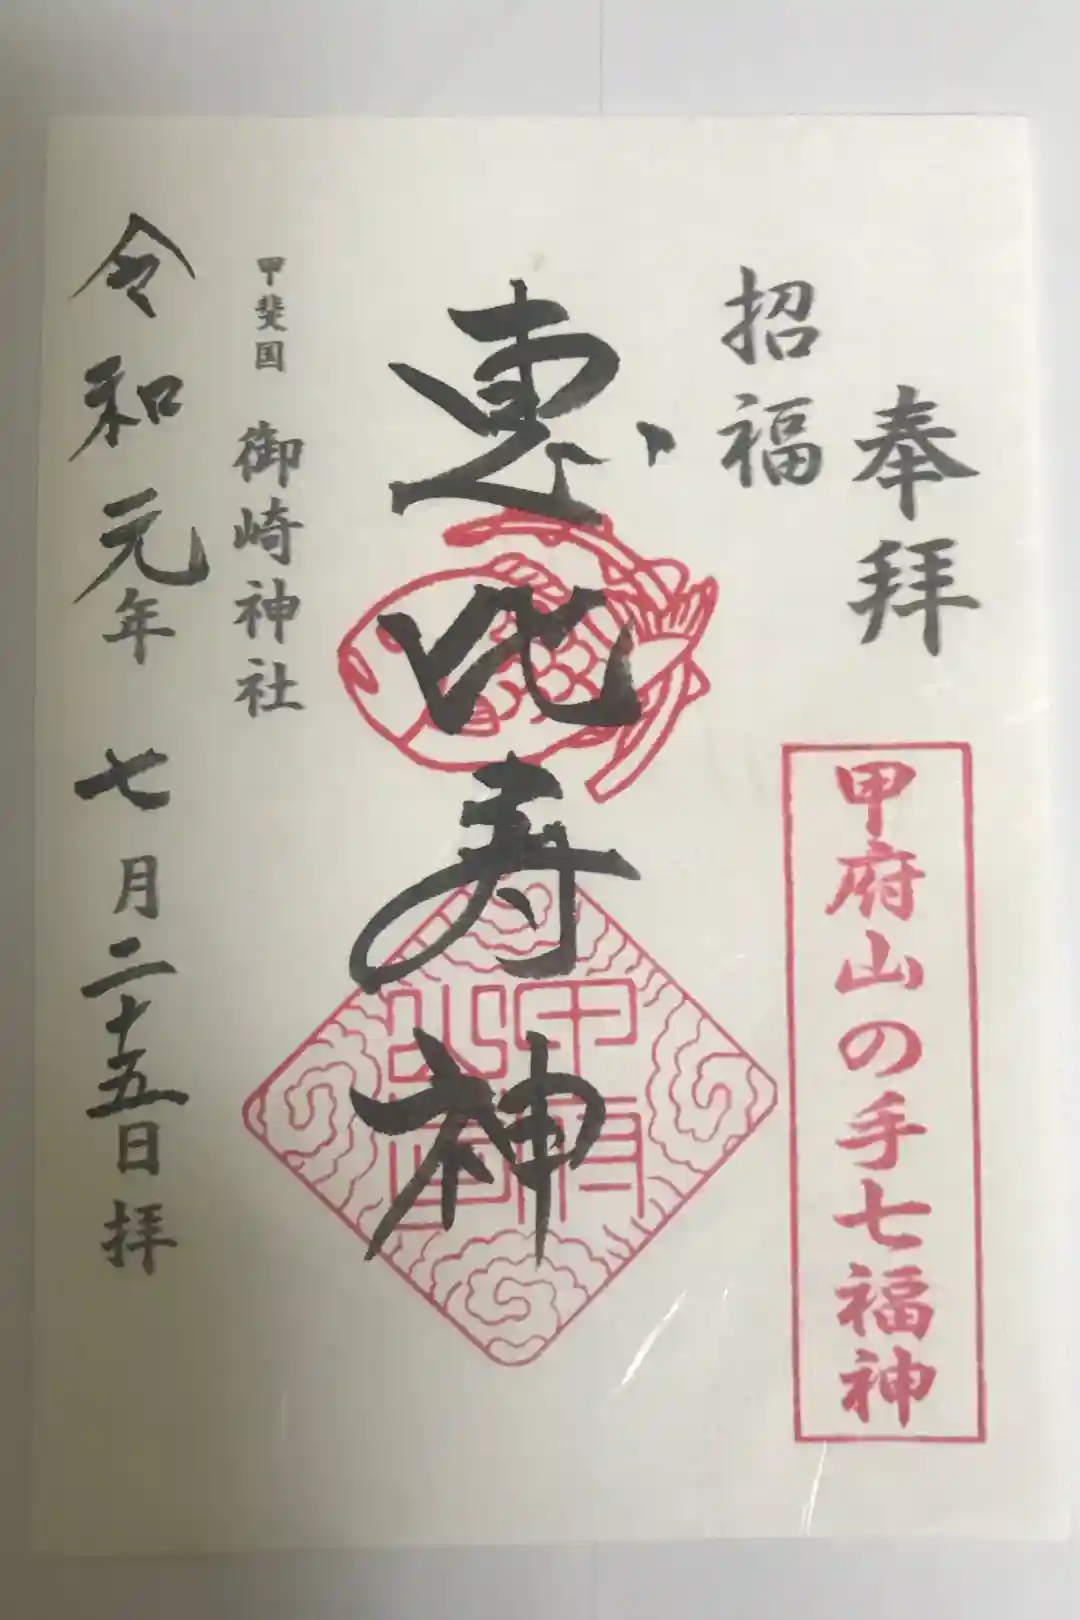 奉拝
甲府山の手七福神
招福
恵比寿神
甲府
甲斐国 御崎神社
令和元年 七月二十五日 拝